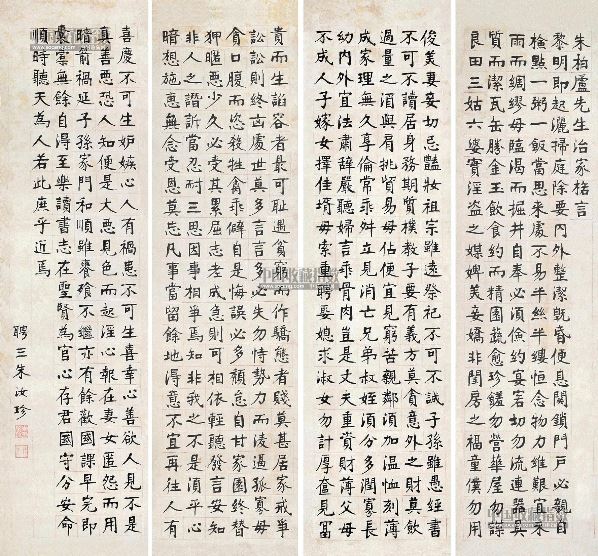 朱柏廬先生治家格言
黎明即起灑掃庭除要內外整潔既昏便息關鎖門戶必親自
檢點一粥一飯當思來處不易半絲半縷恒念物力維艱宜未
雨而綢繆毋臨渴而掘井自奉必須儉約宴客切勿流連器具
質而潔瓦缶勝金玉飲食約而精園蔬愈珍饈勿營華屋勿謀
良田三姑六婆實淫盜之媒婢美妾嬌非閨房之福童僕勿用
俊美妻妾切忌豔妝祖宗雖遠祭祀不可不誠子孫雖愚經書
不可不讀居身務期質樸教子要有義方莫貪意外之財莫飲
過量之酒與肩挑貿易毋佔便宜見窮苦親鄰須加溫恤刻薄
成家理無久享倫常乖舛立見消亡兄弟叔姪須分多潤寡長
幼內外宜法肅辭嚴聽婦言乖骨肉豈是丈夫重貲財薄父母
不成人子嫁女擇佳壻毋索重聘娶媳求淑女勿計厚奩見富
貴而生諂容者最可恥遇貧窮而作驕態者賤莫甚居家戒爭
訟訟則終凶處世莫多言言多必失勿恃勢力而凌逼孤寡毋
貪口腹而恣殺牲禽乖僻自是悔誤必多頹惰自甘家園終替
狎暱惡少久必受其累屈志老成急則可相依輕聽發言安知
非人之譖訴當忍耐三思因事相爭焉知非我之不是須平心
暗想施惠無念受恩莫忘凡事當留餘地得意不宜再往人有
喜慶不可生妒嫉心人有禍患不可生喜幸心善欲人見不是
真善惡恐人知便是大惡見色而起淫心報在妻女匿怨而用
暗箭禍延子孫家門和順雖饔飧不繼亦有餘歡國課早完即
囊橐無餘自得至樂讀書志在聖賢為官心存君國守分安命
順時聽天為人若此庶乎近焉
聘三朱汝珍